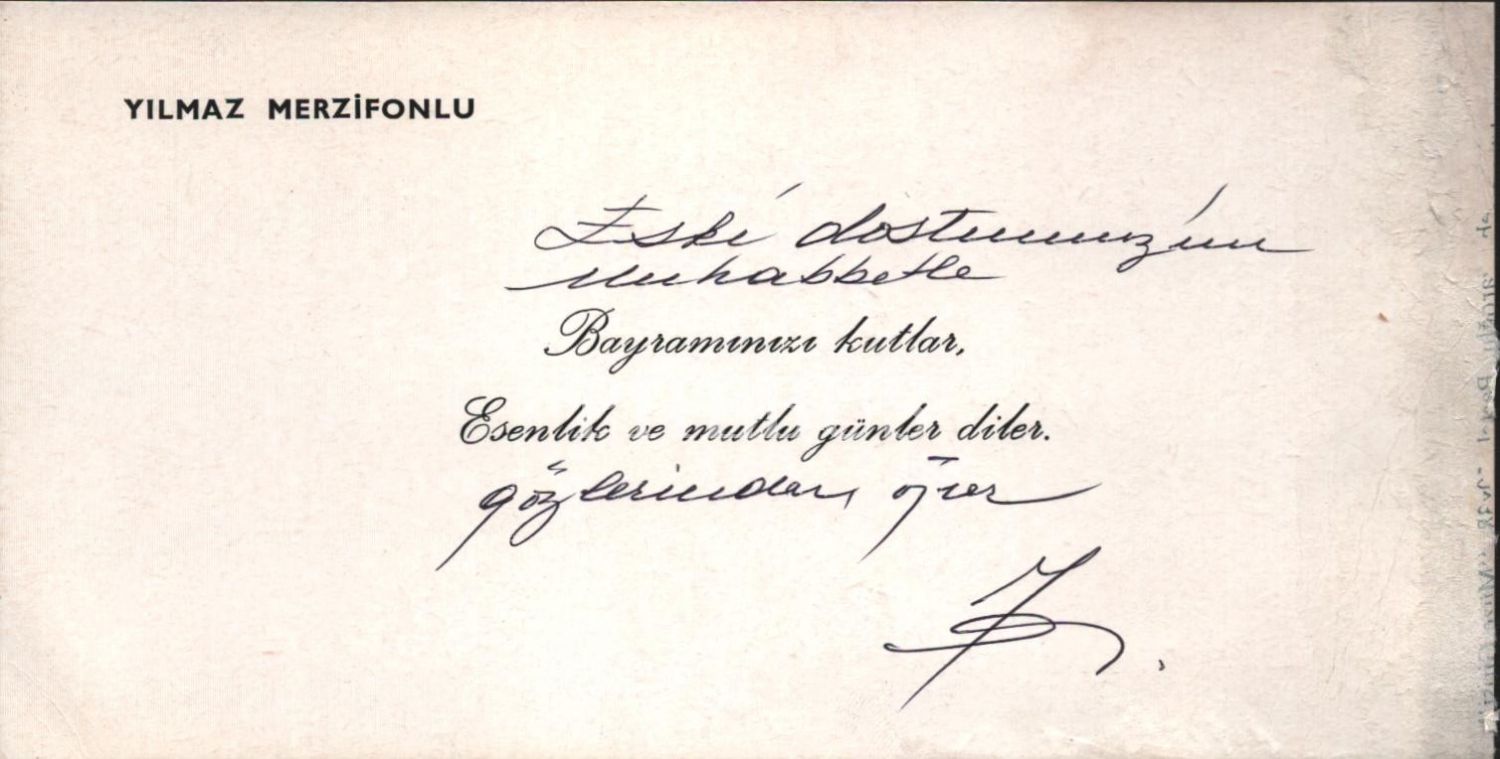 YILMAZ MERZİFONLU
Eski dostumuzun
Muhabbetle
Bayramınızı kutlar,
Esenlik ve mutlu günler diler.
gözlerinden öper